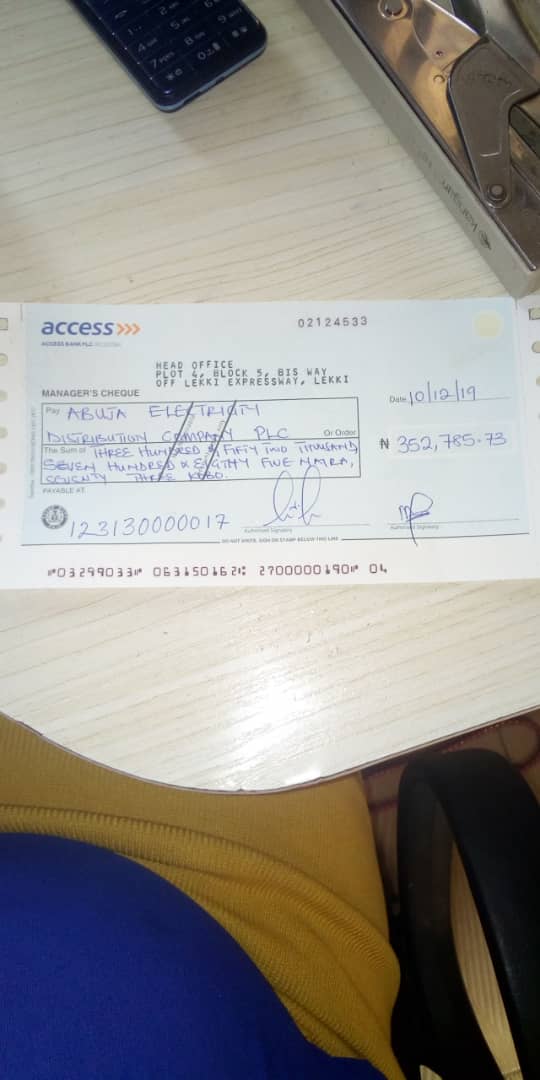 access
ACCESS BANK PLC
02124533
HEAD OFFICE
PLOT 4, BLOCK 5, BIS WAY
OFF LEKKI EXPRESSWAY, LEKKI
MANAGER'S CHEQUE
Date 10/12/19
Pay ABUJA ELECTRICITY
DISTRIBUTION COMPANY PLC Or Order
The Sum of THREE HUNDRED & FIFTY TWO THOUSAND,
SEVEN HUNDRED & EIGHTY FIVE NAIRA,
SEVENTY THREE KOBO.
₦ 352,785.73
PAYABLE AT
123130000017
Authorised Signatory
Authorised Signatory
DO NOT WRITE, SIGN OR STAMP BELOW THIS LINE
⑈03299033⑈ 063150162⑆ 2700000190⑈ 04
Kangaro